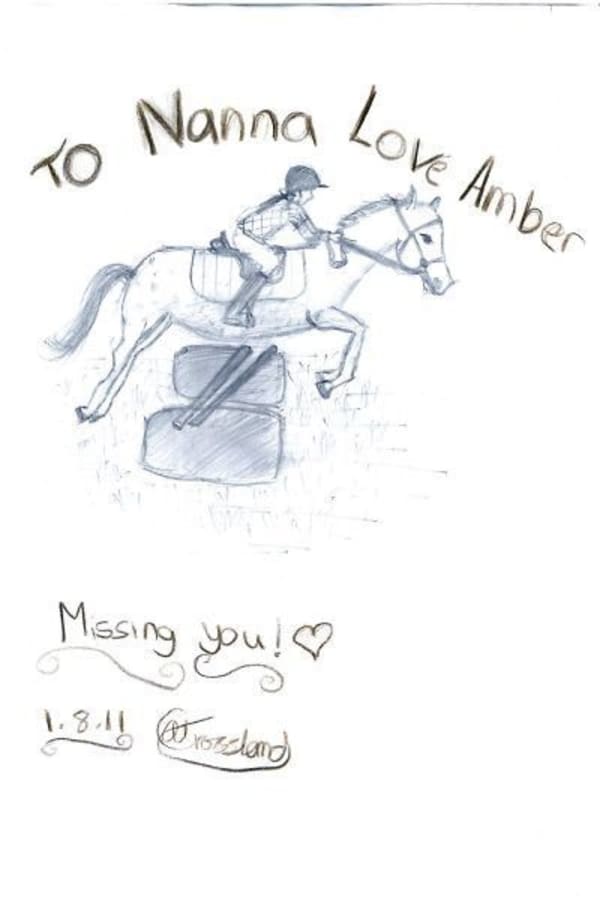 To Nanna Love Amber
Missing you! ♡
1.8.11 Crossland